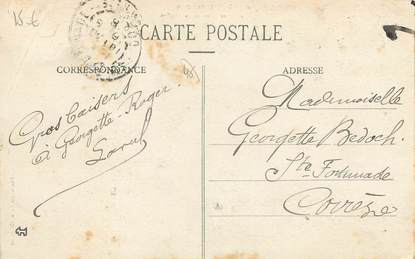 15 €
CARTE POSTALE
CORRESPONDANCE
ADRESSE
Gros baisers
à Georgette - Roger
Mademoiselle
Georgette Bedoch
Ste Fortunade
Corrèze